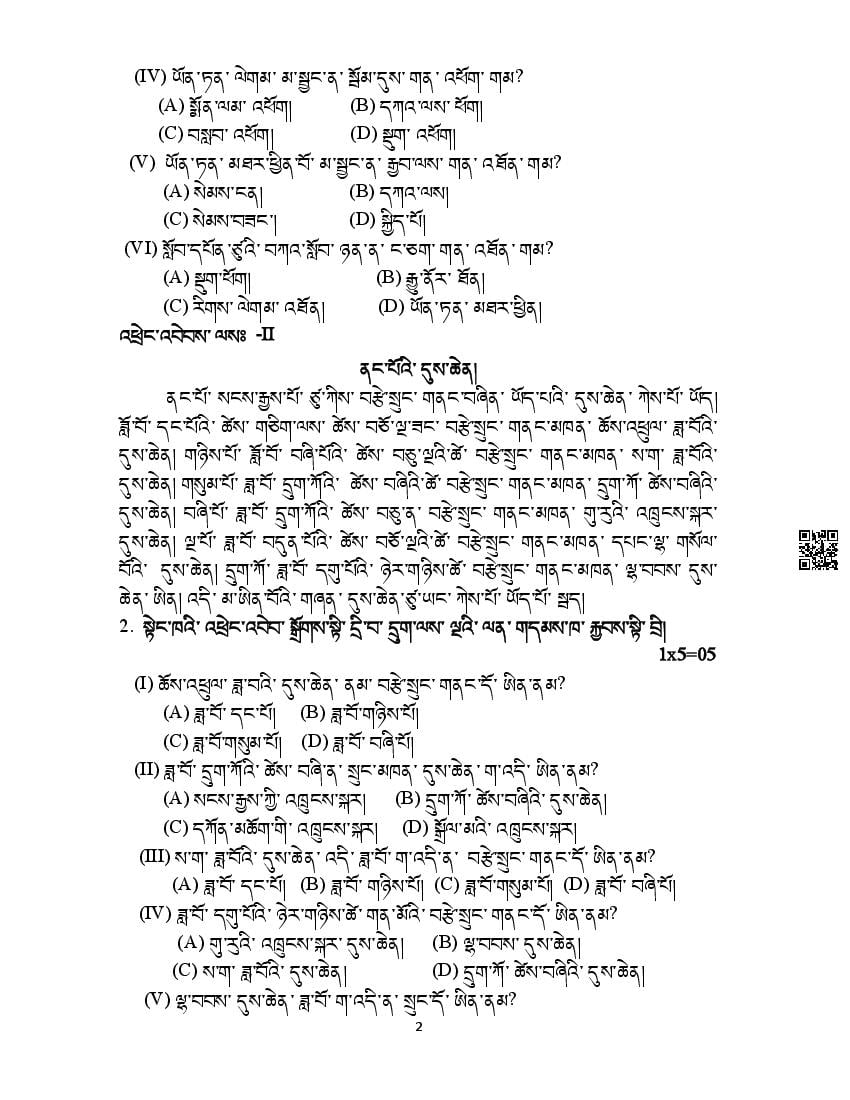 (IV) ཡོན་ཏན་ ལེགམ་ མ་སྦྱང་ན་ སྦོམ་དུས་ གན་ འཕོག་ གམ?
(A) སྨོན་ལམ་ འཕོག། (B) དཀའ་ལས་ ཕོག།
(C) བསླབ་ འཕོག། (D) སྡུག་ འཕོག།
(V) ཡོན་ཏན་ མཐར་ཕྱིན་བོ་ མ་སྦྱང་ན་ རྒྱབ་ལས་ གན་ འཐོན་ གམ?
(A) སེམས་ངན། (B) དཀའ་ལས།
(C) སེམས་བཟང་། (D) སྐྱིད་པོ།
(VI) སློབ་དཔོན་ཙུའི་ བཀའ་སློབ་ ཉན་ན་ ང་ཅག་ གན་ འཐོན་ གམ?
(A) སྡུག་ཕོག། (B) རྒྱུ་ནོར་ ཐོན།
(C) རིགས་ ལེགམ་ འཐོན། (D) ཡོན་ཏན་ མཐར་ཕྱིན།
འཕྲེང་འབེབས་ ལསཿ -II
ནང་པོའི་ དུས་ཆེན།
ནང་པོ་ སངས་རྒྱས་པོ་ ཙུ་ཀིས་ བརྩེ་སྲུང་ གནང་བཞིན་ ཡོད་པའི་ དུས་ཆེན་ ཀེས་པོ་ ཡོད།
ཟློ་བོ་ དང་པོའི་ ཚེས་ གཅིག་ལས་ ཚེས་ བཅོ་ལྔ་ཟང་ བརྩེ་སྲུང་ གནང་མཁན་ ཆོས་འཕྲུལ་ ཟླ་བོའི་
དུས་ཆེན། གཉིས་པོ་ ཟློ་བོ་ བཞི་པོའི་ ཚེས་ བཅུ་ལྔའི་ཚེ་ བརྩེ་སྲུང་ གནང་མཁན་ ས་ག་ ཟླ་བོའི་
དུས་ཆེན། གསུམ་པོ་ ཟླ་བོ་ དྲུག་ཀོའི་ ཚེས་ བཞིའི་ཚེ་ བརྩེ་སྲུང་ གནང་མཁན་ དྲུག་ཀོ་ ཚེས་བཞིའི་
དུས་ཆེན། བཞི་པོ་ ཟླ་བོ་ དྲུག་ཀོའི་ ཚེས་ བཅུ་ན་ བརྩེ་སྲུང་ གནང་མཁན་ གུ་རུའི་ འཁྲུངས་སྐར་
དུས་ཆེན། ལྔ་པོ་ ཟླ་བོ་ བདུན་པོའི་ ཚེས་ བཅོ་ལྔའི་ཚེ་ བརྩེ་སྲུང་ གནང་མཁན་ དཔང་ལྷ་ གསོལ་
བོའི་ དུས་ཆེན། དྲུག་ཀོ་ ཟླ་བོ་ དགུ་པོའི་ ཉེར་གཉིས་ཚེ་ བརྩེ་སྲུང་ གནང་མཁན་ ལྷ་བབས་ དུས་
ཆེན་ ཨིན། འདི་ མ་ཨིན་བོའི་ གཞན་ དུས་ཆེན་ཙུ་ཡང་ ཀེས་པོ་ ཡོད་པོ་ སྦད།
2. སྟེང་ཁའི་ འཕྲེང་འབེབ་ སྒྲོགས་སྟི་ དྲི་བ་ དྲུག་ལས་ ལྔའི་ ལན་ གདམས་ཁ་ རྐྱབས་སྟི་ བྲི།
1x5=05
(I) ཆོས་འཕྲུལ་ ཟླ་བའི་ དུས་ཆེན་ ནམ་ བརྩེ་སྲུང་ གནང་དོ་ ཨིན་ནམ?
(A) ཟླ་བོ་ དང་པོ། (B) ཟླ་བོ་གཉིས་པོ།
(C) ཟླ་བོ་གསུམ་པོ། (D) ཟླ་བོ་ བཞི་པོ།
(II) ཟླ་བོ་ དྲུག་ཀོའི་ ཚེས་ བཞི་ན་ སྲུང་མཁན་ དུས་ཆེན་ ག་འདི་ ཨིན་ནམ?
(A) སངས་རྒྱས་ཀྱི་ འཁྲུངས་སྐར། (B) དྲུག་ཀོ་ ཚེས་བཞིའི་ དུས་ཆེན།
(C) དཀོན་མཆོག་གི་ འཁྲུངས་སྐར། (D) སྒྲོལ་མའི་ འཁྲུངས་སྐར།
(III) ས་ག་ ཟླ་བོའི་ དུས་ཆེན་ འདི་ ཟླ་བོ་ ག་འདི་ན་ བརྩེ་སྲུང་ གནང་དོ་ ཨིན་ནམ?
(A) ཟླ་བོ་ དང་པོ། (B) ཟླ་བོ་ གཉིས་པོ། (C) ཟླ་བོ་གསུམ་པོ། (D) ཟླ་བོ་ བཞི་པོ།
(IV) ཟླ་བོ་ དགུ་པོའི་ ཉེར་གཉིས་ཚེ་ གན་མོའི་ བརྩེ་སྲུང་ གནང་དོ་ ཨིན་ནམ?
(A) གུ་རུའི་ འཁྲུངས་སྐར་ དུས་ཆེན། (B) ལྷ་བབས་ དུས་ཆེན།
(C) ས་ག་ ཟླ་བོའི་ དུས་ཆེན། (D) དྲུག་ཀོ་ ཚེས་བཞིའི་ དུས་ཆེན།
(V) ལྷ་བབས་ དུས་ཆེན་ ཟླ་བོ་ ག་འདི་ན་ སྲུང་དོ་ ཨིན་ནམ?
2